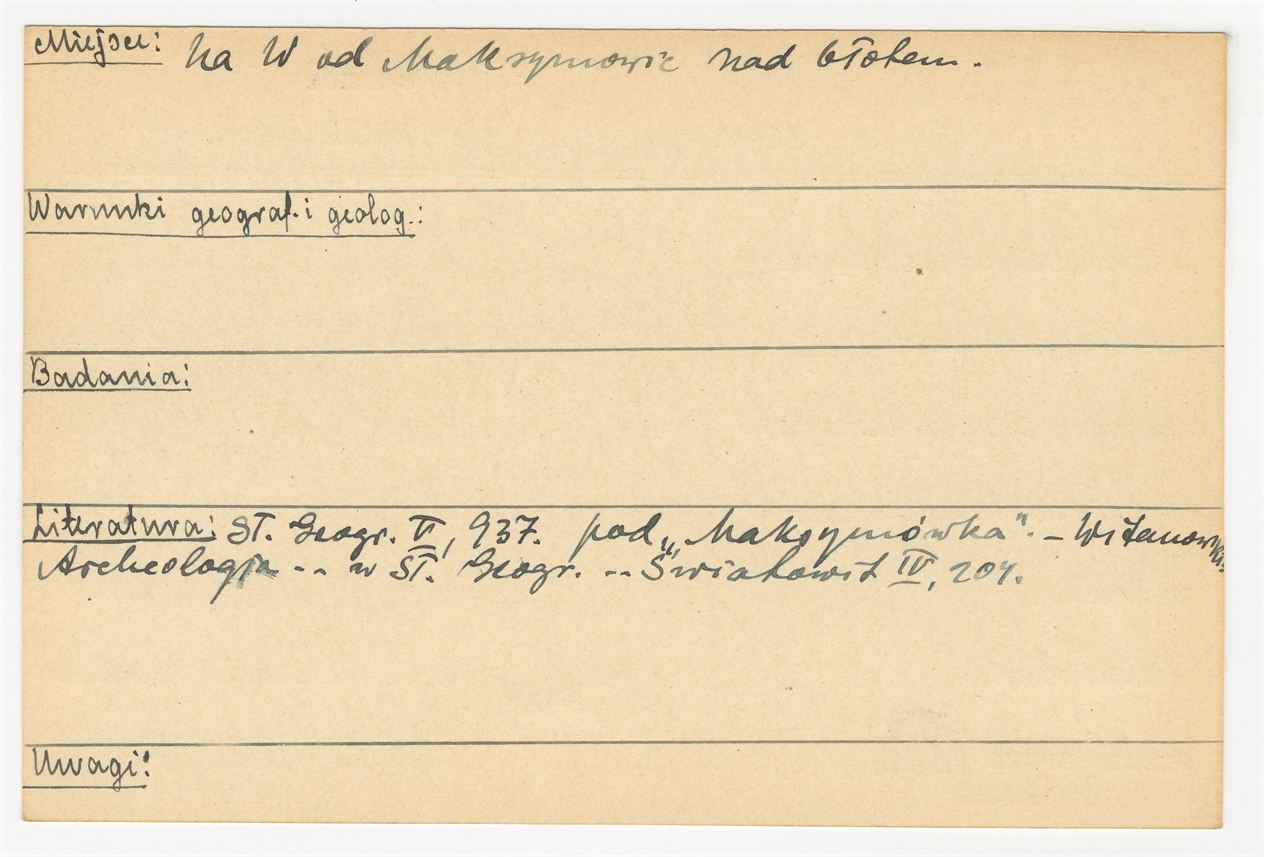 Miejsce: Na W od Maksymowic nad błotem.
Warunki geograf. i geolog.:
Badania:
Literatura: Sł. Geogr. V, 937. pod „Maksymówka". - Witanowski
Archeologja -- w Sł. Geogr. -- Światowit IV, 204.
Uwagi: